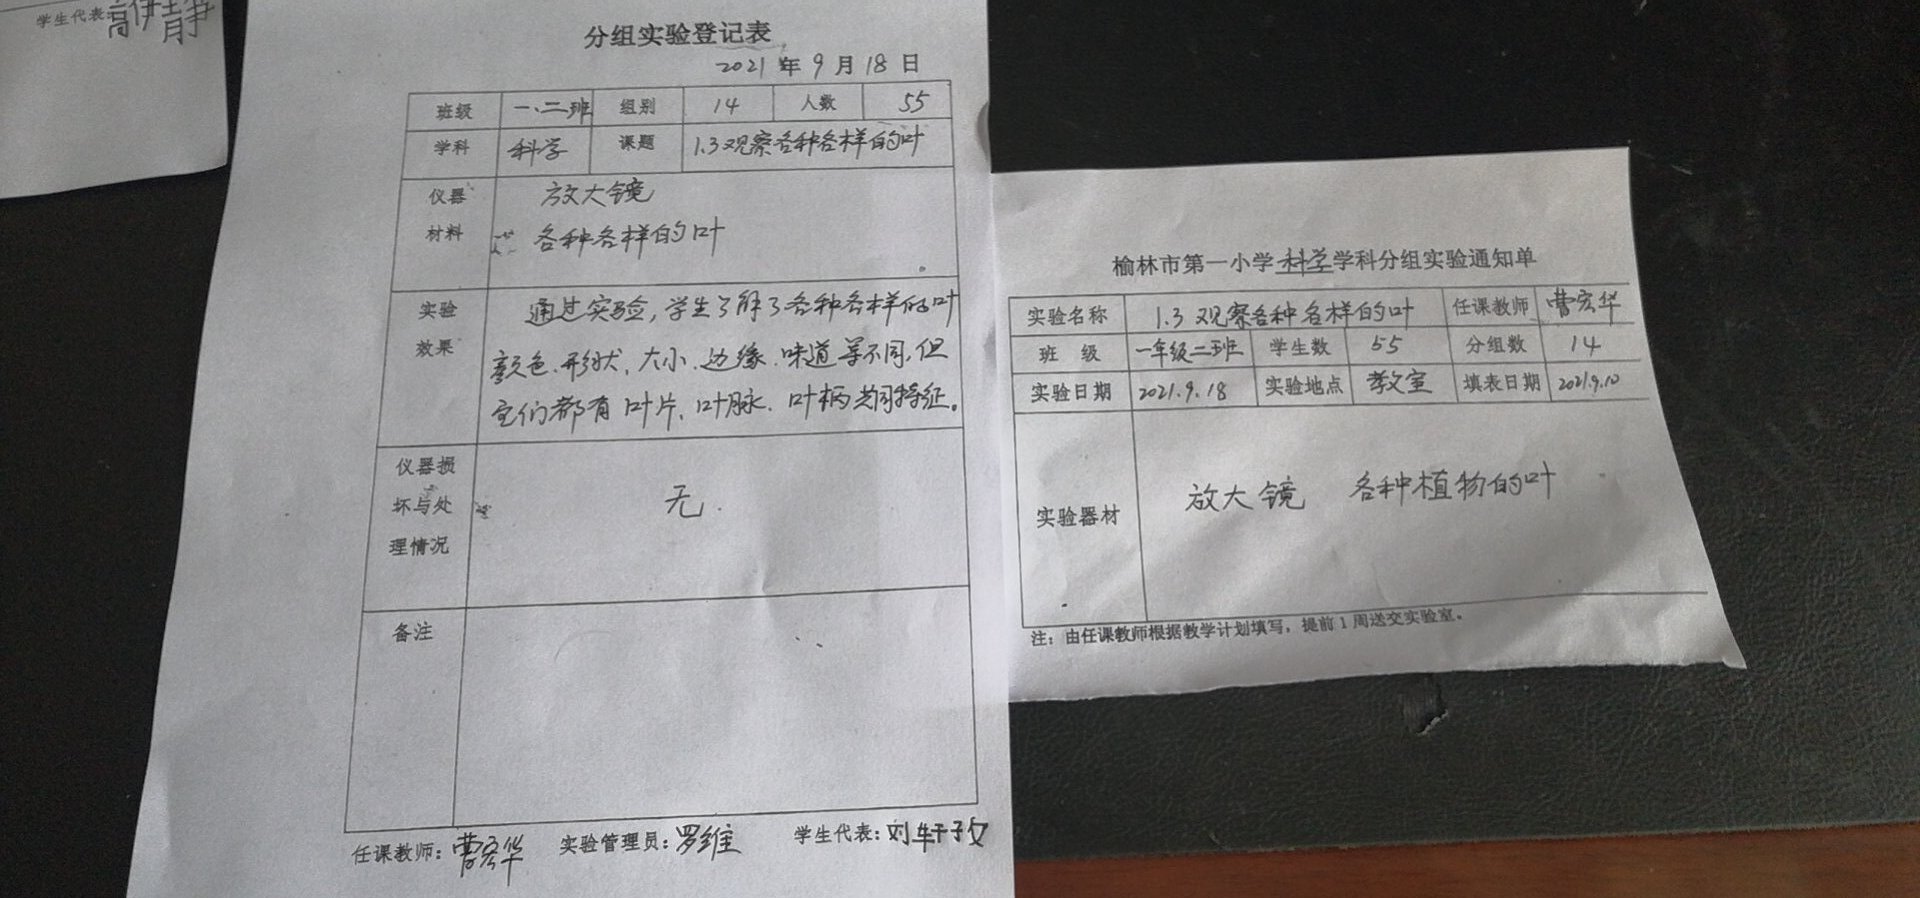 学生代表:高伊静
分组实验登记表
2021年9月18日
班级 一.二班 组别 14 人数 55
学科 科学 课题 1.3观察各种各样的叶
仪器 放大镜
材料 各种各样的叶
实验 通过实验,学生了解了各种各样的叶
效果 颜色、形状、大小、边缘、味道等不同,但
它们都有叶片、叶脉、叶柄共同特征。
仪器损
坏与处 无.
理情况
备注
任课教师:曹宏华 实验管理员:罗维 学生代表:刘轩孜
榆林市第一小学科学学科分组实验通知单
实验名称 1.3 观察各种各样的叶 任课教师 曹宏华
班 级 一年级二班 学生数 55 分组数 14
实验日期 2021.9.18 实验地点 教室 填表日期 2021.9.10
实验器材 放大镜 各种植物的叶
注:由任课教师根据教学计划填写,提前1周送交实验室。